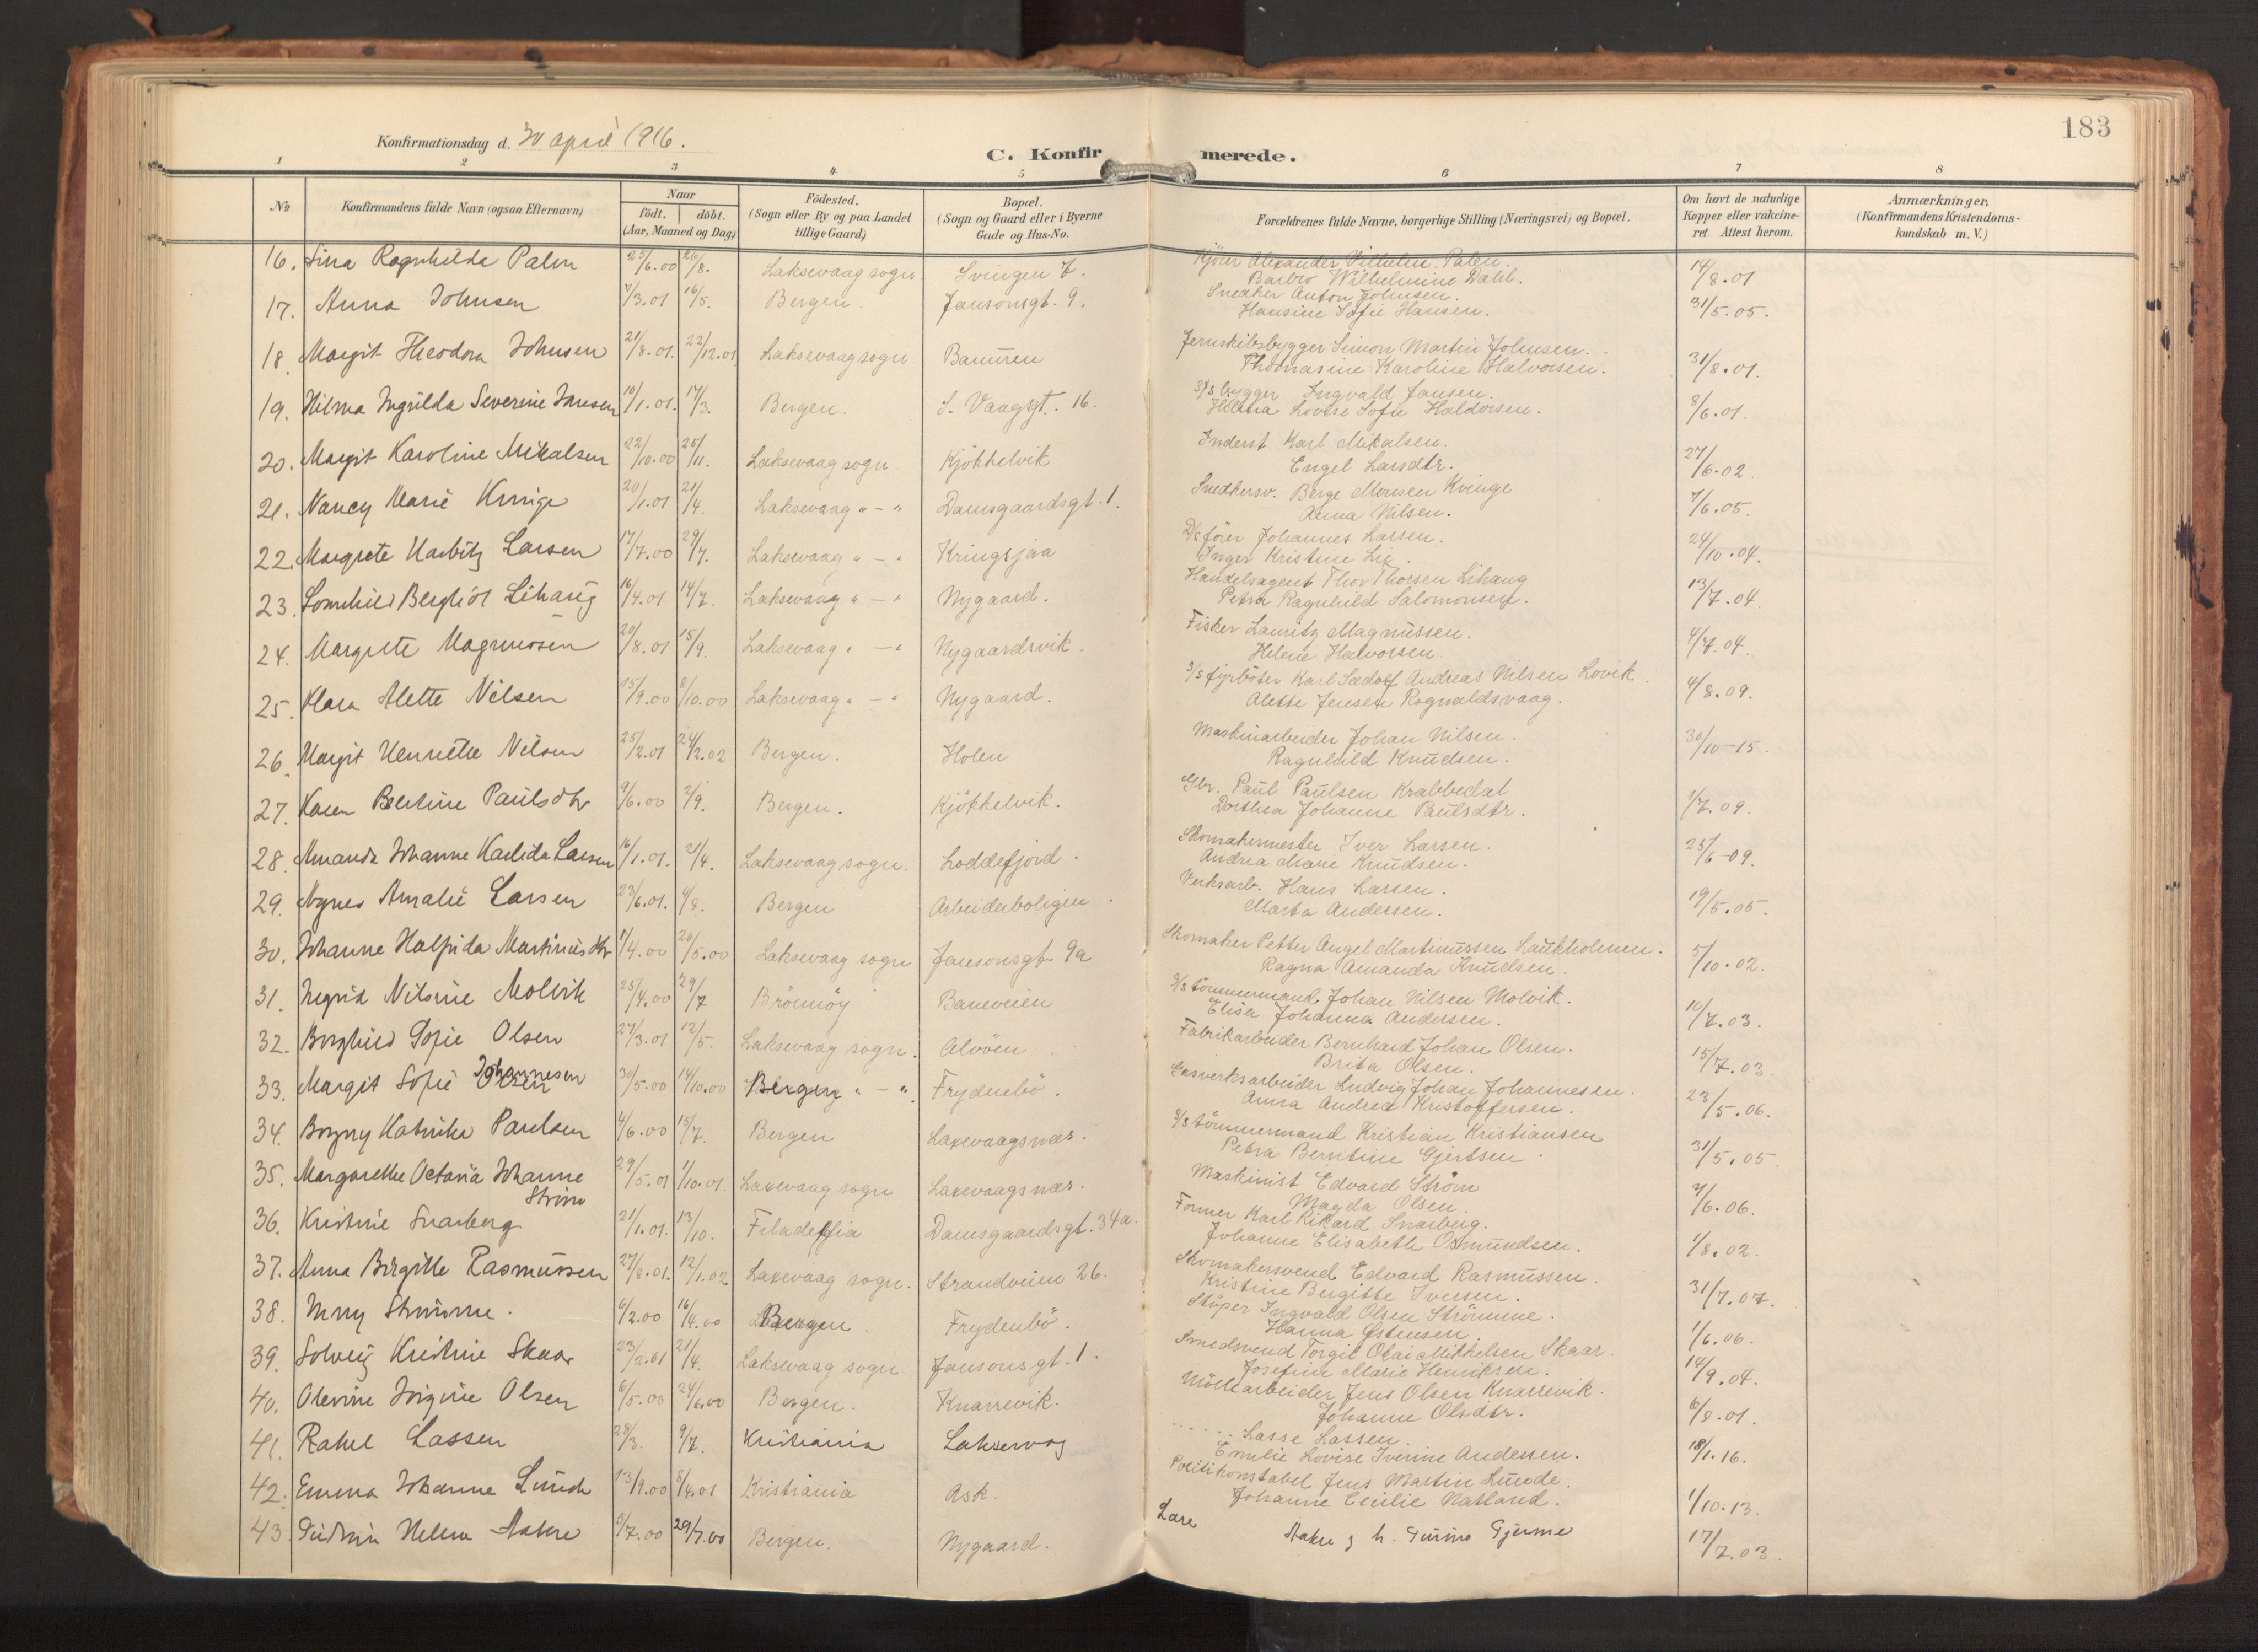 183
Konfirmationsdag d. 30 april 1916.
C. Konfirmerede.
1 2 3 4 5 6 7 8
No
Konfirmandens fulde Navn (ogsaa Efternavn)
Naar
födt. döbt.
(Aar, Maaned og Dag)
Födested.
(Sogn eller By og paa Landet
tillige Gaard)
Bopæl.
(Sogn og Gaard eller i Byerne
Gade og Hus-No.
Forældrenes fulde Navne, borgerlige Stilling (Næringsvei) og Bopæl.
Om havt de naturlige
Kopper eller vakcine-
ret. Attest herom.
Anmærkninger.
(Konfirmandens Kristendoms-
kundskab m. V.)
16. Lina Ragnhilda Palm 25/6.00 26/8. Laksevaag sogn Svingen 7. Kjörer Alexander Vilhelm Palm. 14/8.01
Barbro Wilhelmine Dahl.
17. Anna Johnsen 7/3.01 16/5. Bergen. Jansonsgt. 9. Snedker Anton Johnsen. 31/5.05.
Hansine Sofie Hansen.
18. Margit Theodora Johnsen 21/8.01. 22/12.01 Laksevaag sogn Banuren Jernskibsbygger Simon Martin Johnsen. 31/8.01.
Thomasine Karoline Halvorsen.
19. Hilma Ingvilda Severine Jansen 10/1.01. 17/3. Bergen. S. Vaagsgt. 16. S/s bygger Ingvald Jansen. 8/6.01.
Helena Lovise Sofie Haldorsen.
20. Margit Karoline Mikalsen 22/10.00 25/11. Laksevaag sogn Kjökkelvik Inderst Karl Mikalsen. 27/6.02
Engel Larsdtr.
21. Nancy Marie Kvinge 20/1.01 21/4. Laksevaag " - " Damsgaardsgt. 1. Snedkersv. Berge Monsen Kvinge 7/6.05.
Anna Nilsen.
22. Margrete Harbitz Larsen 17/7.00 29/7. Laksevaag " - " Kringsjaa D/s förer Johannes Larsen. 24/10.04.
Inger Kristine Lie.
23. Bergliot Lihaug 16/4.01 14/7. Laksevaag " - " Nygaard. Handelsagent Thor Thorsen Lihaug 13/7.04.
Petra Ragnhild Salomonsen.
24. Margrete Magnussen 20/8.01 15/9. Laksevaag " - " Nygaardsvik. Fisker Lauritz Magnussen. 4/7.04.
Helene Halvorsen.
25. Klara Alette Nilsen 15/9.00 8/10.00 Laksevaag " - " Nygaard. S/s fyrböter Karl Andreas Nilsen Lovik. 4/8.09.
Alette Jensen Rognaldsvaag.
26. Margit Henriette Nilsen 25/2.01 24/2.02 Bergen. Holen Maskinarbeider Johan Nilsen. 30/10-15.
Ragnhild Knudsen.
27. Karen Berntine Paulsdtr 9/6.00 2/9. Bergen. Kjökkelvik. Gbr. Paul Paulsen Krabbedal 1/7.09.
Dorthea Johanne Paulsdtr.
28. Amanda Johanne Larsen 16/1.01. 21/4. Laksevaag sogn. Loddefjord. Skomakermester Iver Larsen. 25/6-09.
Andrea Marie Knudsen.
29. Agnes Amalie Larsen 23/6.01. 4/8. Bergen Arbeiderboligen. Verksarb. Hans Larsen. 19/5.05.
Marta Andersen.
30. Johanne Halfrida Martinusdtr 1/4.00 20/5.00 Laksevaag sogn Jansonsgt. 9a Skomaker Petter Angel Martinussen Laukholmen. 5/10.02.
Ragna Amanda Knudsen.
31. Ingrid Nilsine Molvik 25/4.00 29/7 Brönnöy Baneveien S/s tömmermand Johan Nilsen Molvik. 10/7.03.
Elisa Johanna Andersen.
32. Borghild Sofie Olsen 27/3.01 12/5. Laksevaag sogn. Alvöen Fabrikarbeider Bernhard Johan Olsen. 15/7.03.
Brita Olsen.
33. Margit Sofie Johannesen 30/5.00 14/10.00 Bergen " - " Frydenbö. Gasverksarbeider Ludvig Johan Johannesen. 23/5.06.
Anna Andrea Kristoffersen.
34. Borgny Katrika Paulsen 4/6.00 15/7. Bergen Laxevaagsnæs. S/s tömmermand Kristian Kristiansen 31/5.05
Petra Berntine Gjertsen.
35. Margarethe Octavia Johanne 29/5.01 1/10.01. Laxevaag sogn Laxevaagsnæs. Maskinist Edvard Ström 7/6.06.
Ström Magda Olsen.
36. Kristine Snarberg 21/1.01. 13/10. Filadelfia Damsgaardsgt. 34a. Former Karl Rikard Snarberg. 1/8.02.
Johanne Elisabeth Osmundsen.
37. Anna Birgitte Rasmussen 27/8.01. 12/1.02 Laxevaag sogn. Strandveien 26. Skomakersvend Edvard Rasmussen. 31/7.07.
Kristine Bergitte Iversen.
38. Strömme. 6/2.00 16/4.00 Bergen Frydenbö. Stöper Ingvald Olsen Strömme. 1/6.06.
Hanna Østensen
39. Solveig Kristine Skaar 23/2.01 21/4. Laksevaag sogn Jansonsgt. 1. Smedsvend Torgil Olai Mikkelsen Skaar. 14/9.04.
Josefine Marie Henriksen.
40. Olevine Jörgine Olsen 6/5.00 24/6.00 Bergen. Knarrevik. Möllearbeider Jens Olsen Knarrevik. 6/8.01.
Johanne Olsdtr.
41. Rakel Lassen 28/3. 9/7. Kristiania Laksevaag ..... Lasse Lassen 18/1.16.
Emelie Lovise Iverine Andersen.
42. Emma Johanne Lunde 13/9.00 8/4.01 Kristiania Ask. Politikonstabel Jens Martin Lunde. 1/10.13.
Johanne Cecilie Natland.
43. Gudrun Helene Aakre 5/7.00 29/7.00 Bergen. Nygaard. Lars Aakre og h. Gjerme 17/7.03.